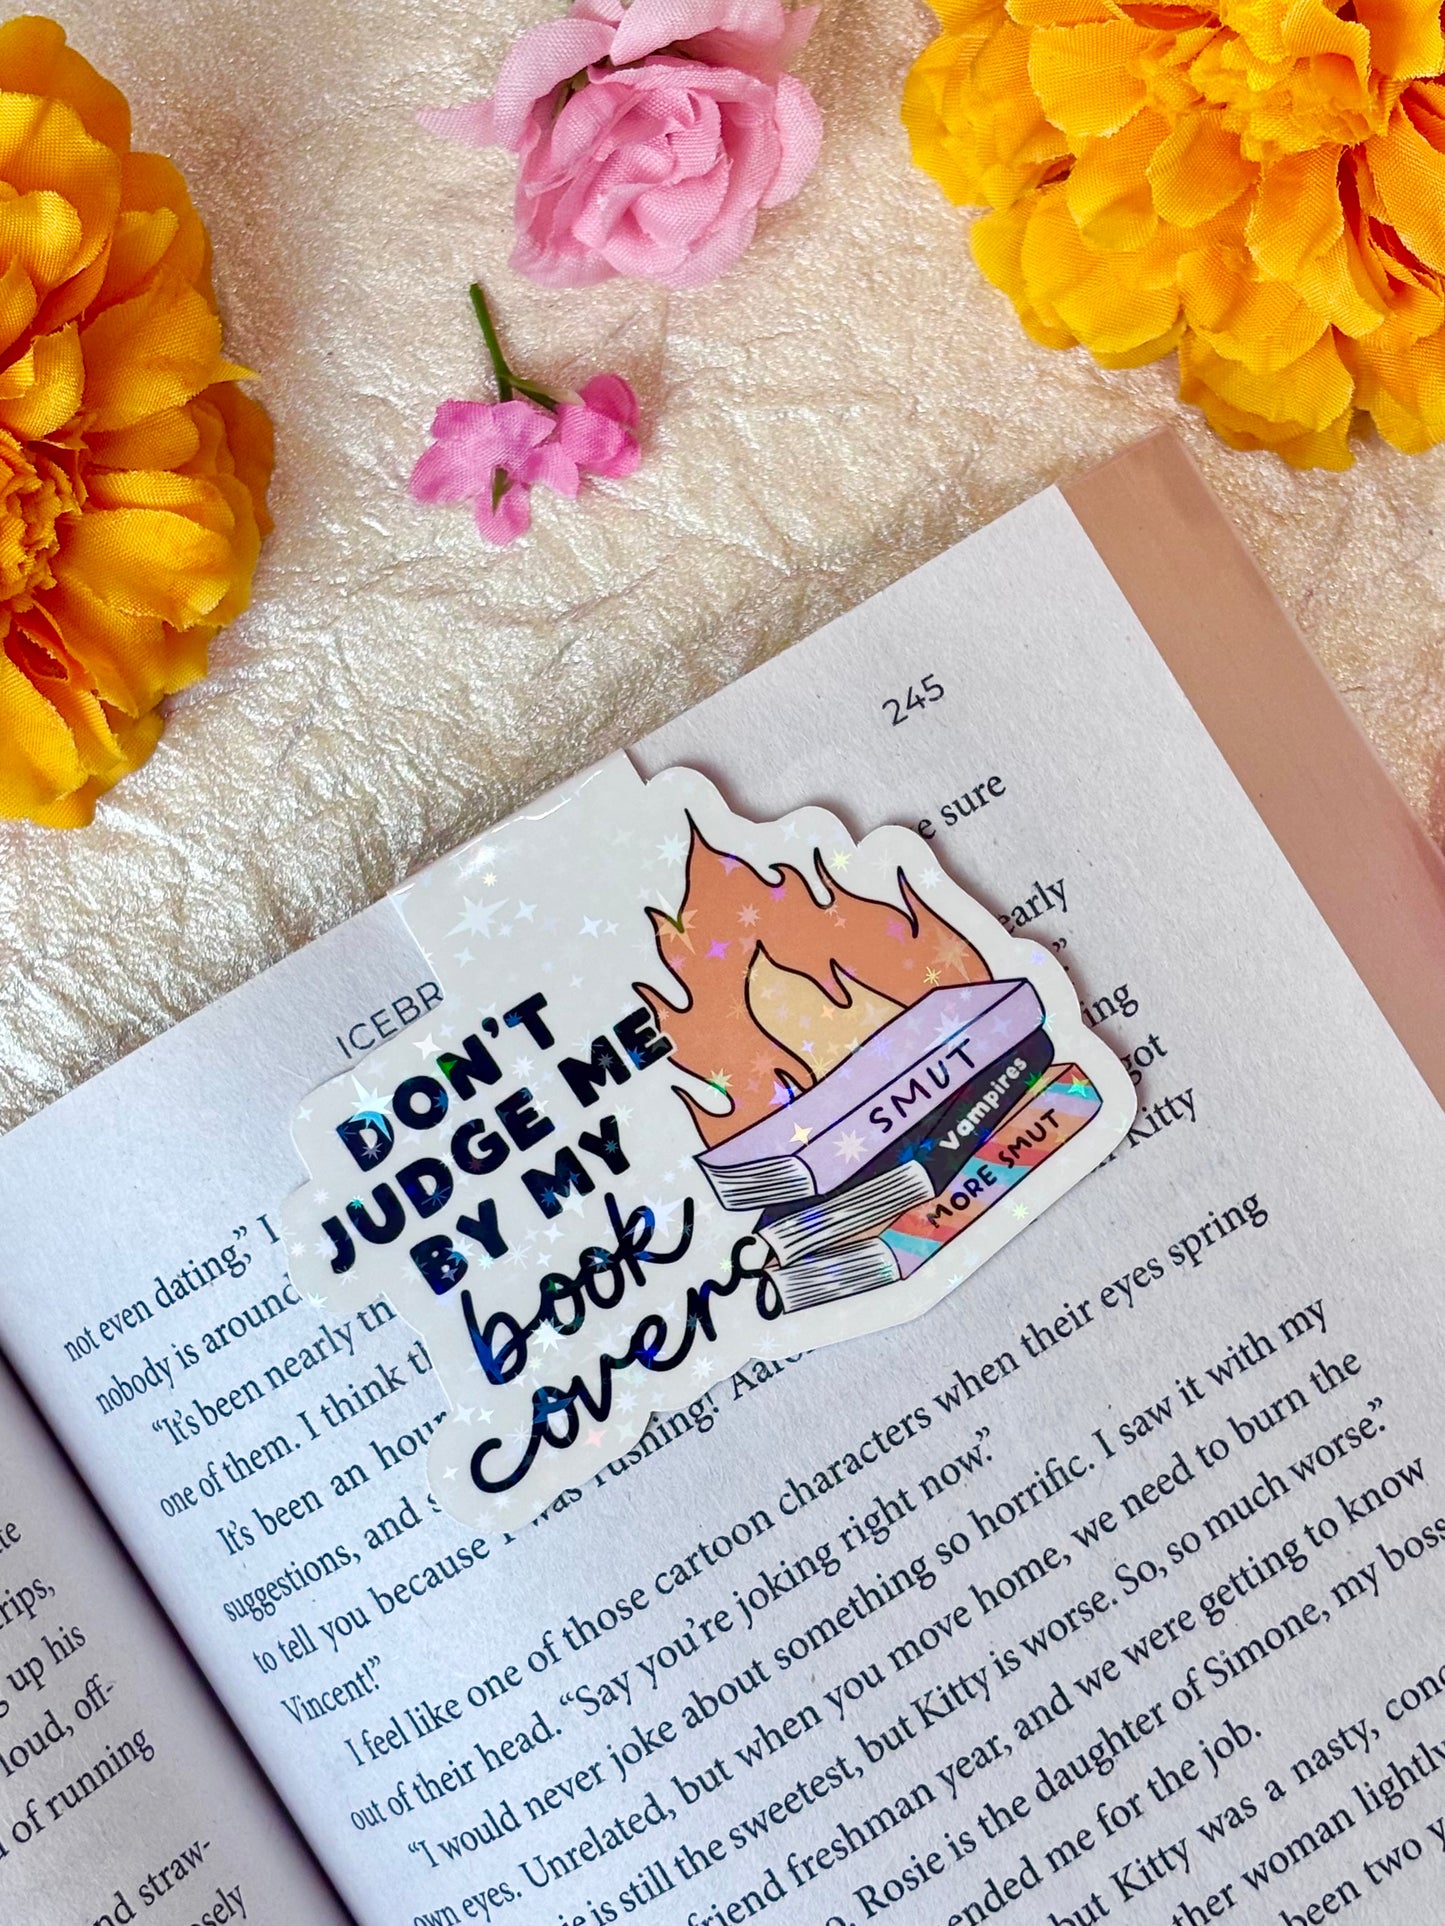 245
ICEBR
DON'T
JUDGE ME
BY MY
book
covers
SMUT
vampires
MORE SMUT
e sure
early
.”
ing
got
Kitty
not even dating,” I
nobody is around
“It’s been nearly th
one of them. I think th
It’s been an hour
suggestions, and s
to tell you because I was rushing! Aaro
Vincent!”
I feel like one of those cartoon characters when their eyes spring
out of their head. “Say you’re joking right now.”
“I would never joke about something so horrific. I saw it with my
own eyes. Unrelated, but when you move home, we need to burn the
ie is still the sweetest, but Kitty is worse. So, so much worse.”
friend freshman year, and we were getting to know
o. Rosie is the daughter of Simone, my boss
ended me for the job.
but Kitty was a nasty, conc
ther woman lightly
been two y
te
rips,
g up his
loud, off-
d of running
nd straw-
osely